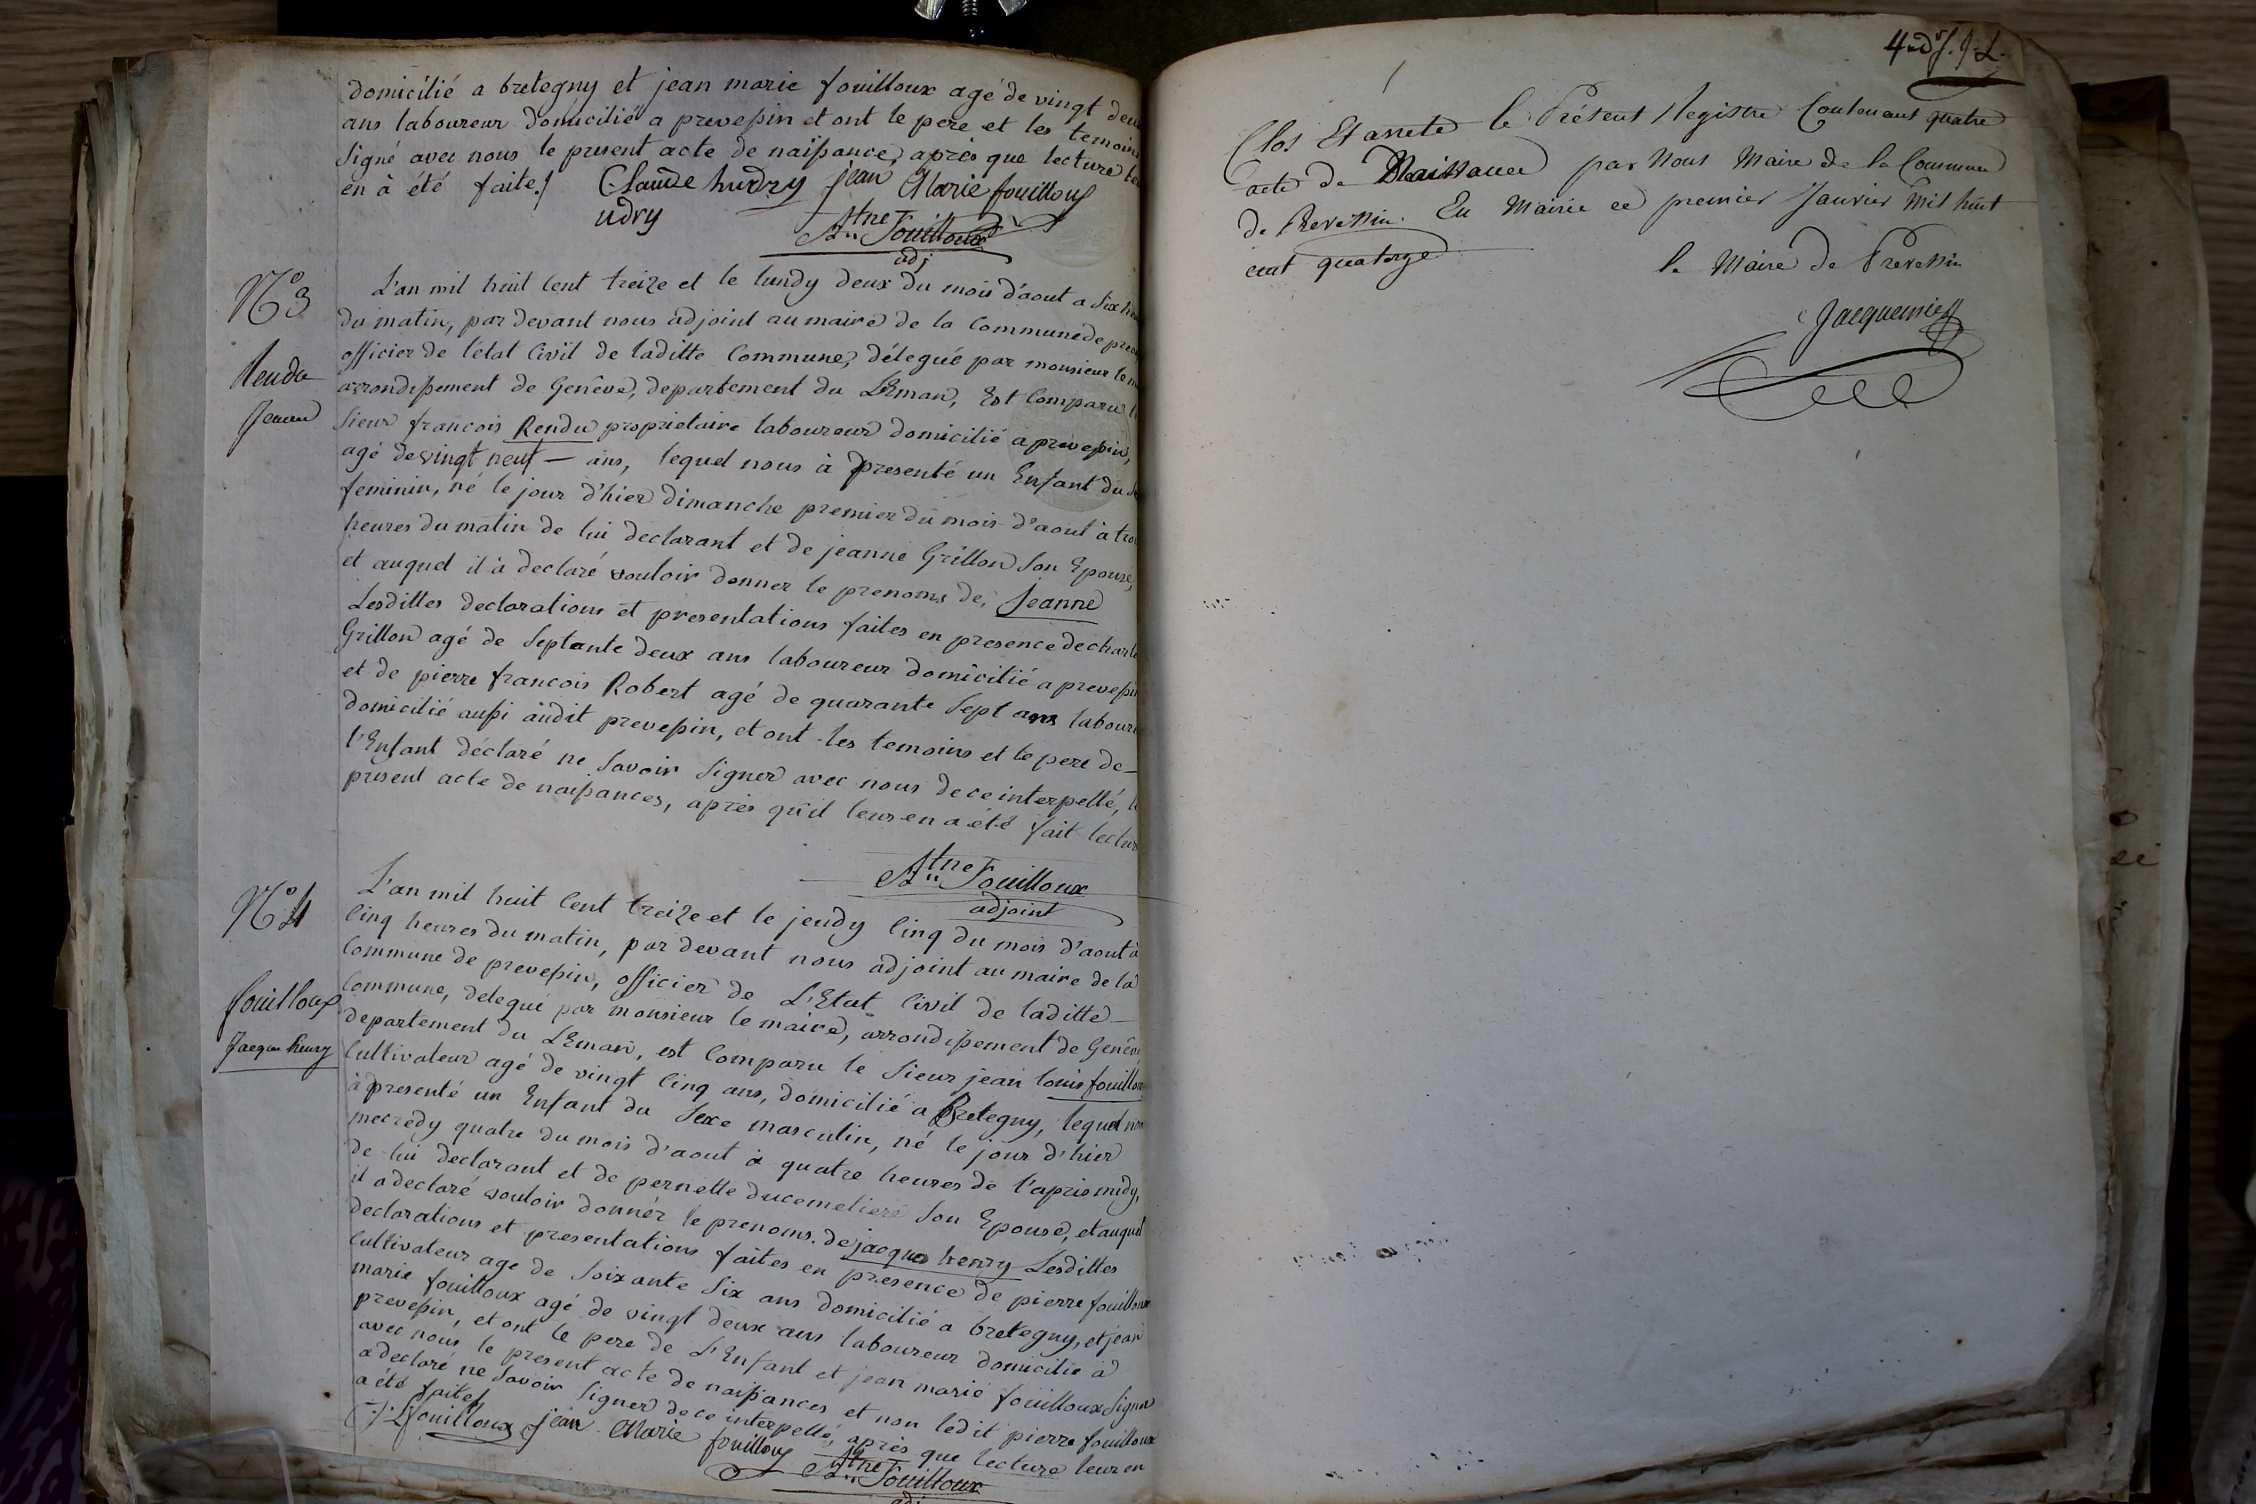 domicilié a bretegny et jean marie fouilloux agé de vingt deux
ans laboureur domicilié a prevessin et ont le pere et les temoins
Signé avec nous le present acte de naissance, après que lecture
en à été faite./ Claude hudry jean Marie fouilloux
udry
Atne Fouilloux
adj
N° 3
Rendu
Jeanne
L'an mil huit Cent treize et le lundy deux du mois d'aout a Six
du matin, par devant nous adjoint au maire de la Commune de
officier de l'état Civil de laditte Commune, délegué par monsieur le
arrondissement de Genève, departement du LEman, Est Comparu
Sieur françois Rendu proprietaire laboureur domicilié a prevessin,
agé de vingt neuf — ans, lequel nous à presenté un Enfant du
feminin, né le jour d'hier dimanche premier du mois d'aout à
heures du matin de lui declarant et de jeanne Grillon Son Epouse,
et auquel il à declaré vouloir donner le prenoms de, Jeanne
Lesdittes declarations et presentations faites en presence de
Grillon agé de Septante deux ans laboureur domicilié a
et de pierre françois Robert agé de quarante Sept ans
domicilié aussi audit prevessin, et ont les temoins et le pere de
l'Enfant déclaré ne Savoir Signer avec nous de ce interpellé,
present acte de naissances, après qu'il leurs en a été fait
Atne Fouilloux
adjoint
N° 4
fouilloux
Jacques henry
L'an mil huit Cent treize et le jeudy Cinq du mois d'aout à
Cinq heures du matin, par devant nous adjoint au maire de la
Commune de prevessin, officier de L'Etat Civil de laditte
Commune, delegué par monsieur le maire, arrondissement de
departement du LEman, est Comparu le Sieur jean louis fouilloux
Cultivateur agé de vingt Cinq ans, domicilié a Bretegny, lequel
à presenté un Enfant du Sexe masculin, né le jour d'hier
mecredy quatre du mois d'aout à quatre heures de l'apris midy,
de lui declarant et de pernette ducemeliere Son Epouse, et auquel
il a declaré vouloir donnér le prenoms. de jacques henry Lesdittes
declarations et presentations faites en presence de pierre fouilloux
Cultivateur age de Soixante Six ans domicilié a bretegny, et jean
marie fouilloux agé de vingt deux ans laboureur domicilié à
prevessin, et ont le pere de L'Enfant et jean marie fouilloux Signer
avec nous le present acte de naissances et non ledit pierre fouilloux
a déclaré ne Savoir Signer de ce interpellé, après que lecture leur en
a été faite/
fouilloux jean Marie fouilloux
Atne Fouilloux
adj
Clos Et arreté le Présent Registre Contenant quatre
acte de Naissance par Nous Maire de la Commune
de Prevessin. En Mairie ce premier Janvier Mil huit
cent quatorze
le Maire de Prevessin